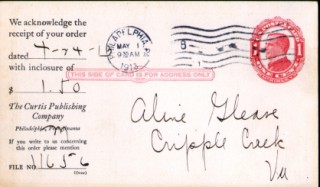 We acknowledge the
receipt of your order
dated
with inclosure of
$ 1.50
The Curtis Publishing
Company
Philadelphia, Pennsylvania
If you write to us concerning
this order please mention
FILE NO. 11656
(Over)
PHILADELPHIA, PA.
MAY 1
9 30 AM
1913
(THIS SIDE OF CARD IS FOR ADDRESS ONLY)
Cripple Creek
Va